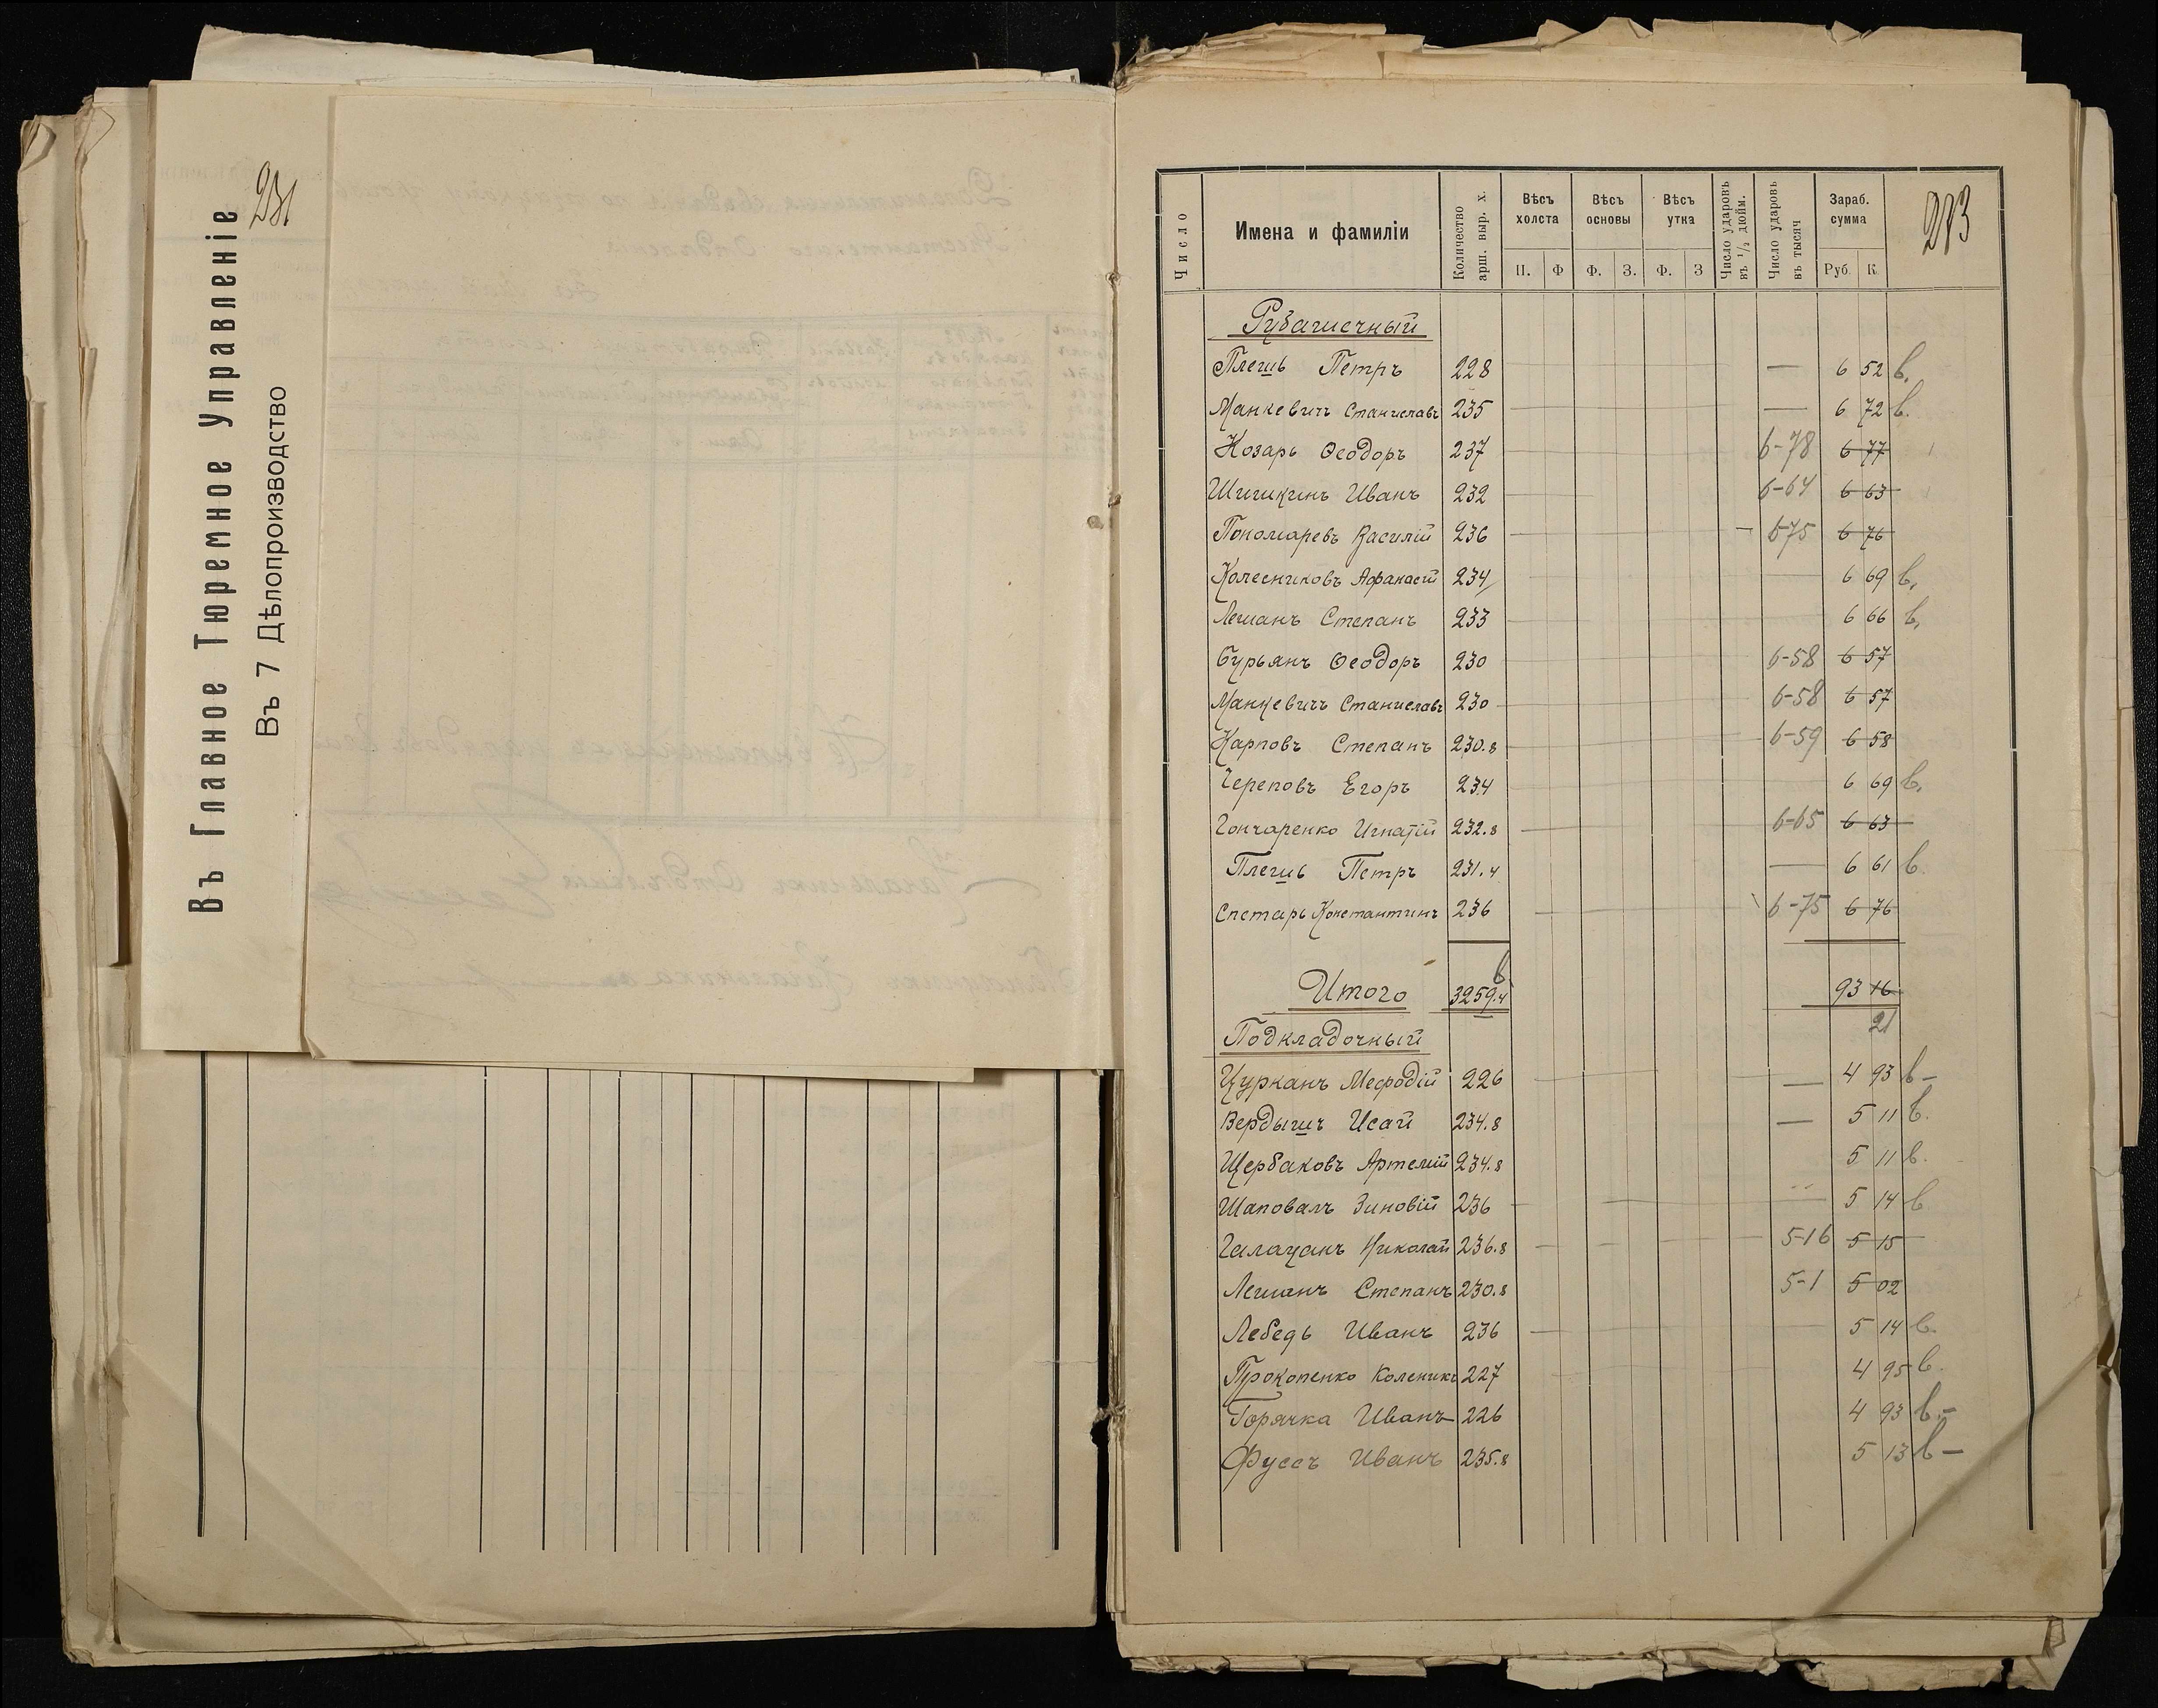 Въ Главное Тюремное Управленіе
Въ 7 Дѣлопроизводство
231
Число
Имена и фамиліи
Количество арш. выр. х.
Вѣсъ холста
Вѣсъ основы
Вѣсъ утка
Число ударовъ въ 1/2 дюйм.
Число ударовъ въ тысяч
Зараб. сумма
П. Ф Ф. З. Ф. З Руб. К
Рубашечный
Плешь Петръ 228 — 6 52 в.
Манкевичъ Станиславъ 235 — 6 72 в.
Козарь Ѳеодоръ 237 6-78 6 77
Шишкинъ Иванъ 232 6-64 6 63
Пономаревъ Василій 236 6-75 6 76
Колесниковъ Афанасій 234 6 69 в.
Лешанъ Степанъ 233 6 66 в.
Бурьянъ Ѳеодоръ 230 6-58 6 57
Манкевичъ Станиславъ 230 6-58 6 57
Карповъ Степанъ 230.8 6-59 6 58
Череповъ Егоръ 234 6 69 в.
Гончаренко Игнатій 232.8 6-65 6 63
Плешь Петръ 231.4 — 6 61 в.
Спетарь Константинъ 236 6-75 6 76
Итого 3259.4 в 93 16
21
Подкладочный
Цурканъ Мефодій 226 — 4 93 в –
Вердышъ Исай 234.8 — 5 11 в.
Щербаковъ Артемій 234.8 5 11 в.
Шаповалъ Зиновій 236 — 5 14 в
Галацанъ Николай 236.8 5-16 5 15
Лешанъ Степанъ 230.8 5-1 5 02
Лебедь Иванъ 236 5 14 в.
Прокопенко Каленикъ 227 4 95 в.
Горячка Иванъ 226 4 93 в. –
Фуссъ Иванъ 235.8 5 13 в –